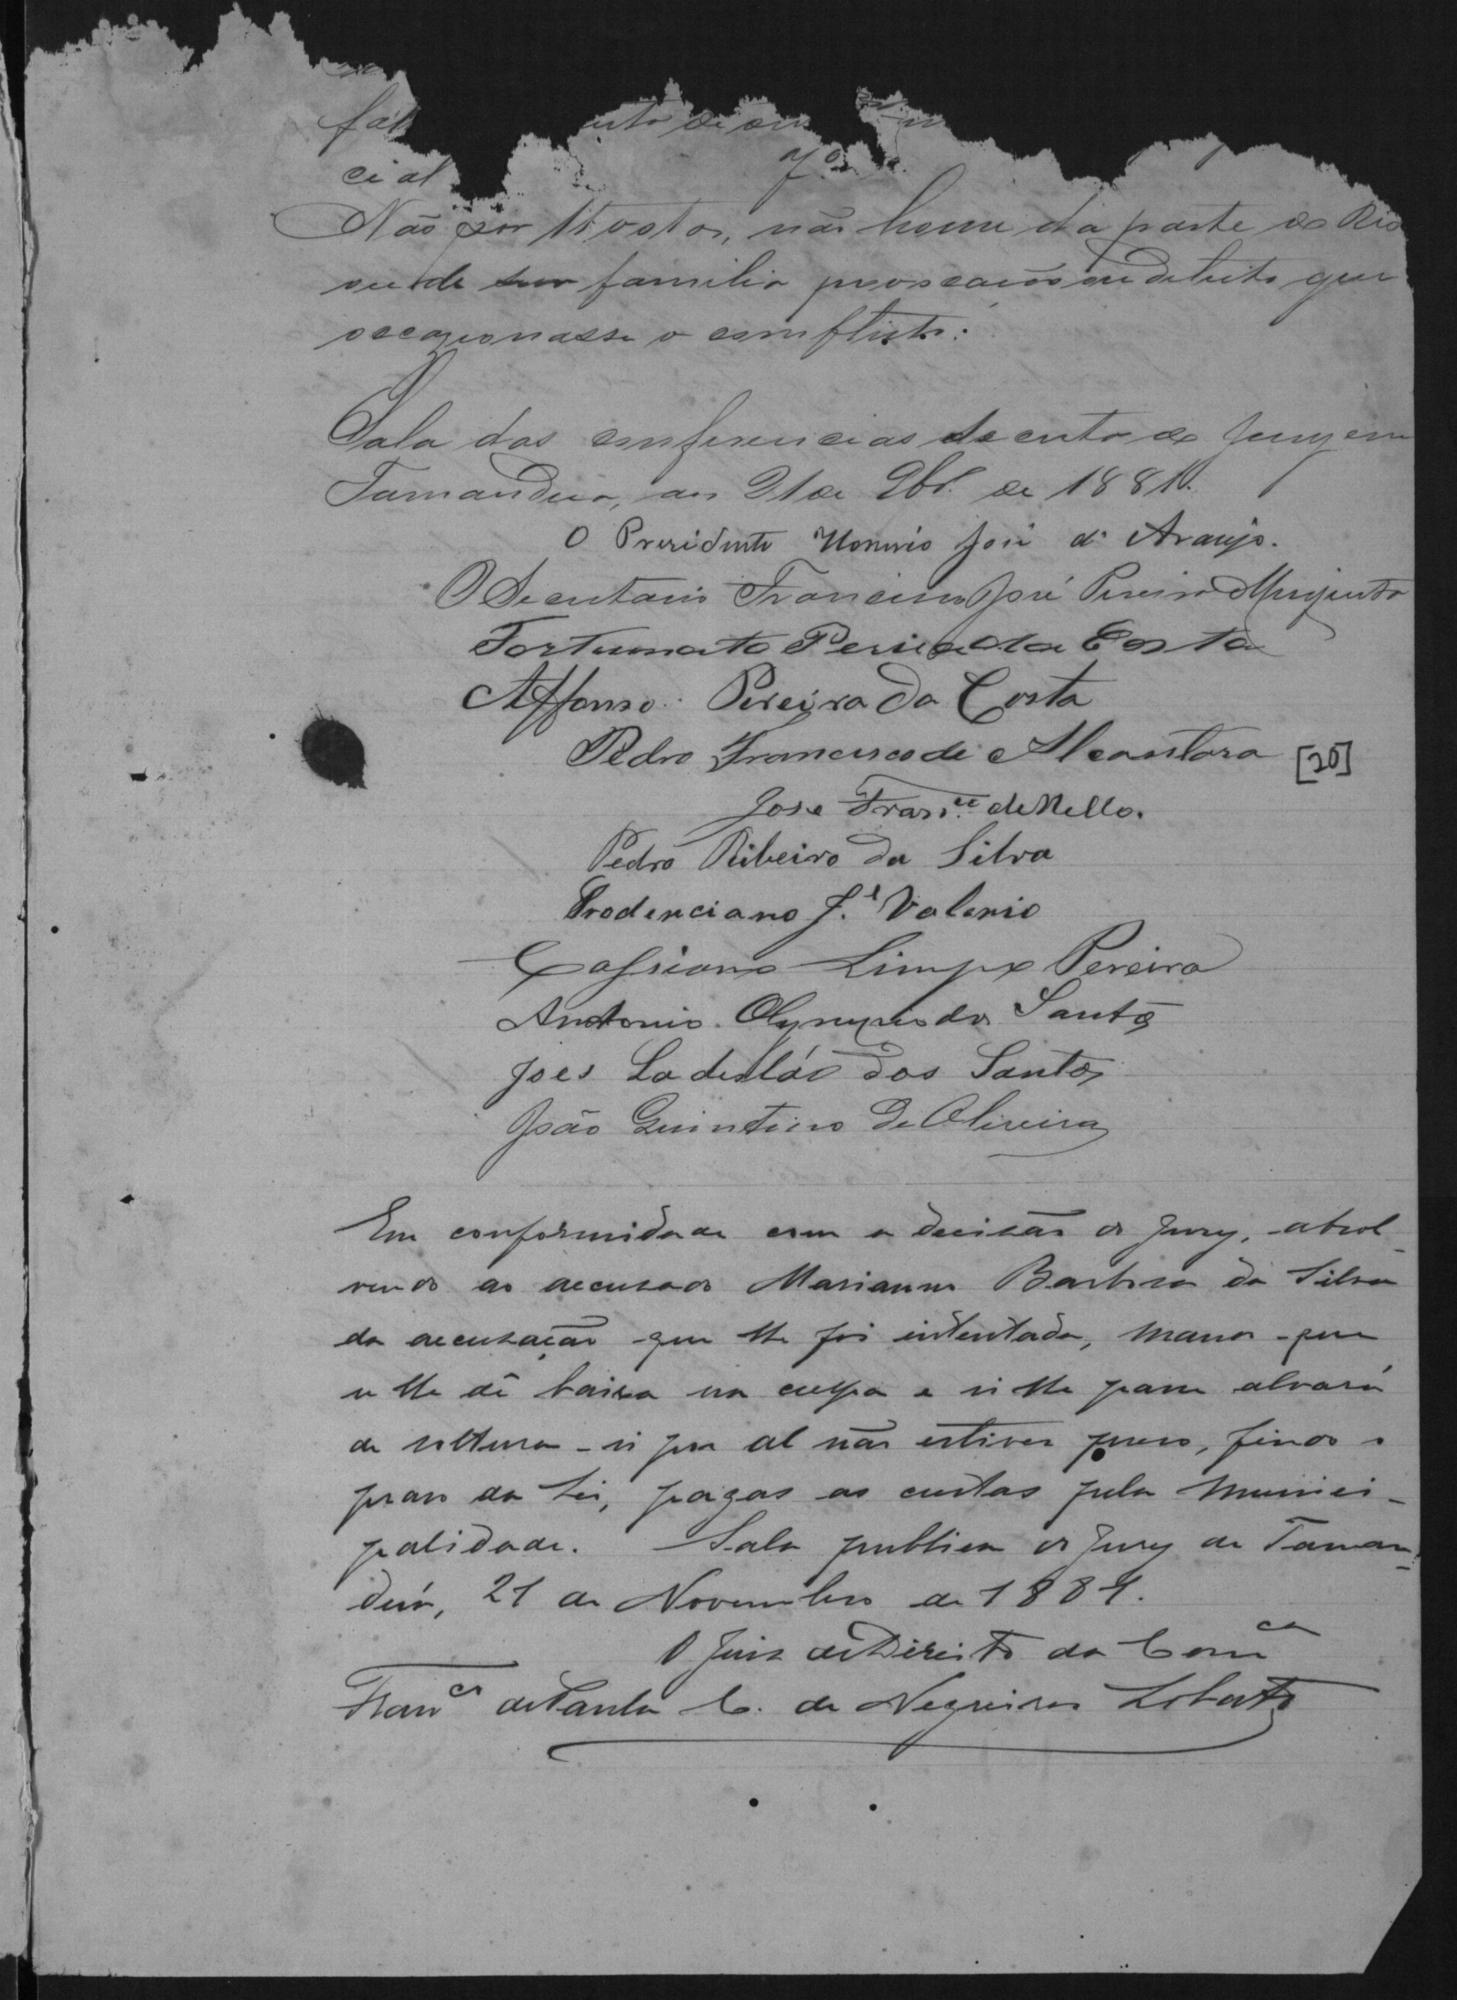 fal
cial 7º
Não por 11 votos, não houve da parte do Reo
ou de sua familia provocação ou delicto que
occazionasse o comflicto:
Sala das comferencias secreta do Jury em
Tamanduá, aos 21 de 9br. de 1881.
O Prezidente Honorio José d' Araujo.
O Secretario Francisco José Pereira
Fortunato Pereira da Costa
Affonso Pereira da Costa
Pedro Francisco de Alcantara [20]
Jose Fran.co de Mello.
Pedro Ribeiro da Silva
Prodenciano J.é Valerio
Cassiano Limpo Pereira
Antonio Olympio dos Santos
Joes Ladesláo dos Santos
João Quintino de Oliveira
Em conformidade com a decisão do Jury, absol-
vendo ao accusado Marianno Barboza da Silva
da accusação que lhe foi intentada, mando que
se lhe dê baixa na culpa e si lhe passe alvará
de soltura si por al não estiver preso, findo o
praso da lei, pagas as custas pela Munici-
palidade. Sala publica do Jury de Taman-
duá, 21 de Novembro de 1881.
O Juiz de Direito da Comca
Franco de Paula C. de Negreiros Lobato